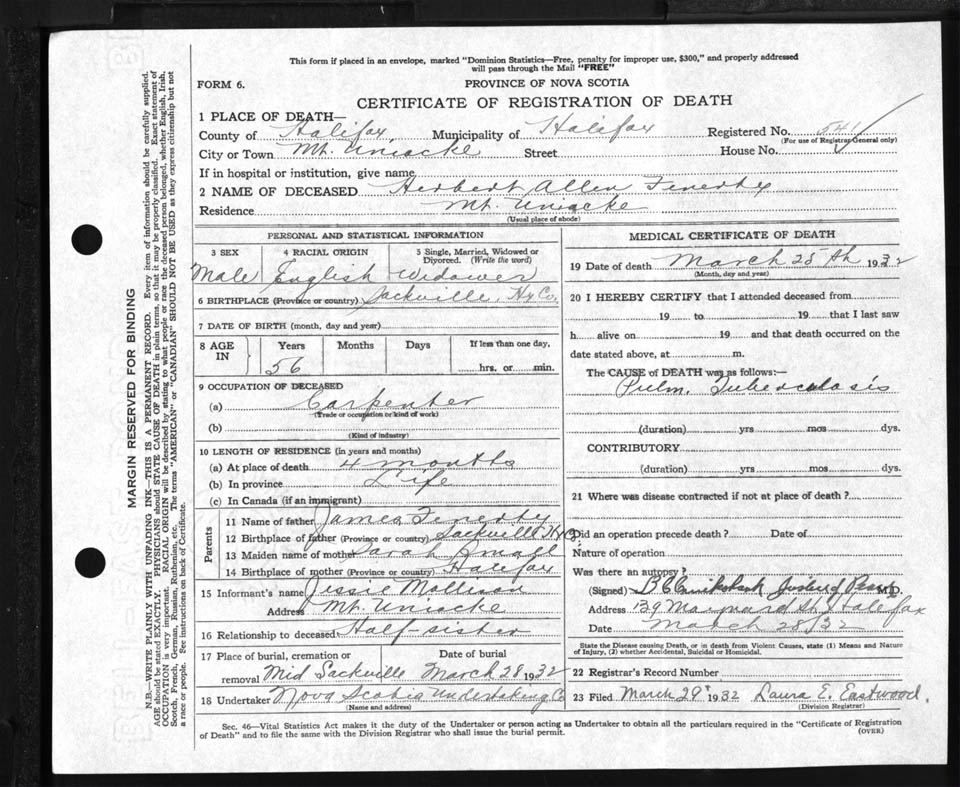 This form if placed in an envelope, marked "Dominion Statistics—Free, penalty for improper use, $300," and properly addressed
will pass through the Mail "FREE"
FORM 6. PROVINCE OF NOVA SCOTIA
CERTIFICATE OF REGISTRATION OF DEATH
1 PLACE OF DEATH—
County of Halifax Municipality of Halifax Registered No.
(For use of Registrar General only)
City or Town Mt. Uniacke Street House No.
If in hospital or institution, give name
2 NAME OF DECEASED Herbert Allen Fenerty
Residence Mt. Uniacke
(Usual place of abode)
PERSONAL AND STATISTICAL INFORMATION
3 SEX 4 RACIAL ORIGIN 5 Single, Married, Widowed or Divorced. (Write the word)
Male English Widower
6 BIRTHPLACE (Province or country) Sackville, Hx Co.
7 DATE OF BIRTH (month, day and year)
8 AGE IN Years Months Days If less than one day,
56 hrs. or min.
9 OCCUPATION OF DECEASED
(a) Carpenter
(Trade or occupation or kind of work)
(b)
(Kind of industry)
10 LENGTH OF RESIDENCE (in years and months)
(a) At place of death 4 months
(b) In province Life
(c) In Canada (if an immigrant)
Parents
11 Name of father James Fenerty
12 Birthplace of father (Province or country) Sackville Hx Co
13 Maiden name of mother Sarah
14 Birthplace of mother (Province or country) Halifax
15 Informant's name Jessie Mollison
Address Mt. Uniacke
16 Relationship to deceased Half-sister
17 Place of burial, cremation or removal Date of burial
Mid Sackville March 28 1932
18 Undertaker Nova Scotia Undertaking Co
(Name and address)
MEDICAL CERTIFICATE OF DEATH
19 Date of death March 25th 1932
(Month, day and year)
20 I HEREBY CERTIFY that I attended deceased from
19 to 19 that I last saw
h alive on 19 and that death occurred on the
date stated above, at m.
The CAUSE of DEATH was as follows:—
Pulm. Tuberculosis
(duration) yrs mos dys.
CONTRIBUTORY
(duration) yrs mos dys.
21 Where was disease contracted if not at place of death?
Did an operation precede death? Date of
Nature of operation
Was there an autopsy?
(Signed) M.D.
Address 139 Maynard St, Halifax
Date March 28/32
State the Disease causing Death, or in death from Violent Causes, state (1) Means and Nature of Injury, (2) whether Accidental, Suicidal or Homicidal.
22 Registrar's Record Number
23 Filed March 29 1932 Laura E. Eastwood,
(Division Registrar)
Sec. 46—Vital Statistics Act makes it the duty of the Undertaker or person acting as Undertaker to obtain all the particulars required in the "Certificate of Registration
of Death" and to file the same with the Division Registrar who shall issue the burial permit. (OVER)
MARGIN RESERVED FOR BINDING
N.B.—WRITE PLAINLY WITH UNFADING INK—THIS IS A PERMANENT RECORD. Every item of information should be carefully supplied.
AGE should be stated EXACTLY. PHYSICIANS should STATE CAUSE OF DEATH in plain terms, so that it may be properly classified. Exact statement of
OCCUPATION is very important. RACIAL ORIGIN will be described by stating to what people or race the deceased person belonged, whether English, Irish,
Scotch, French, German, Russian, Ruthenian, etc. The terms "AMERICAN" or "CANADIAN" SHOULD NOT BE USED as they express citizenship but not
a race or people. See instructions on back of Certificate.